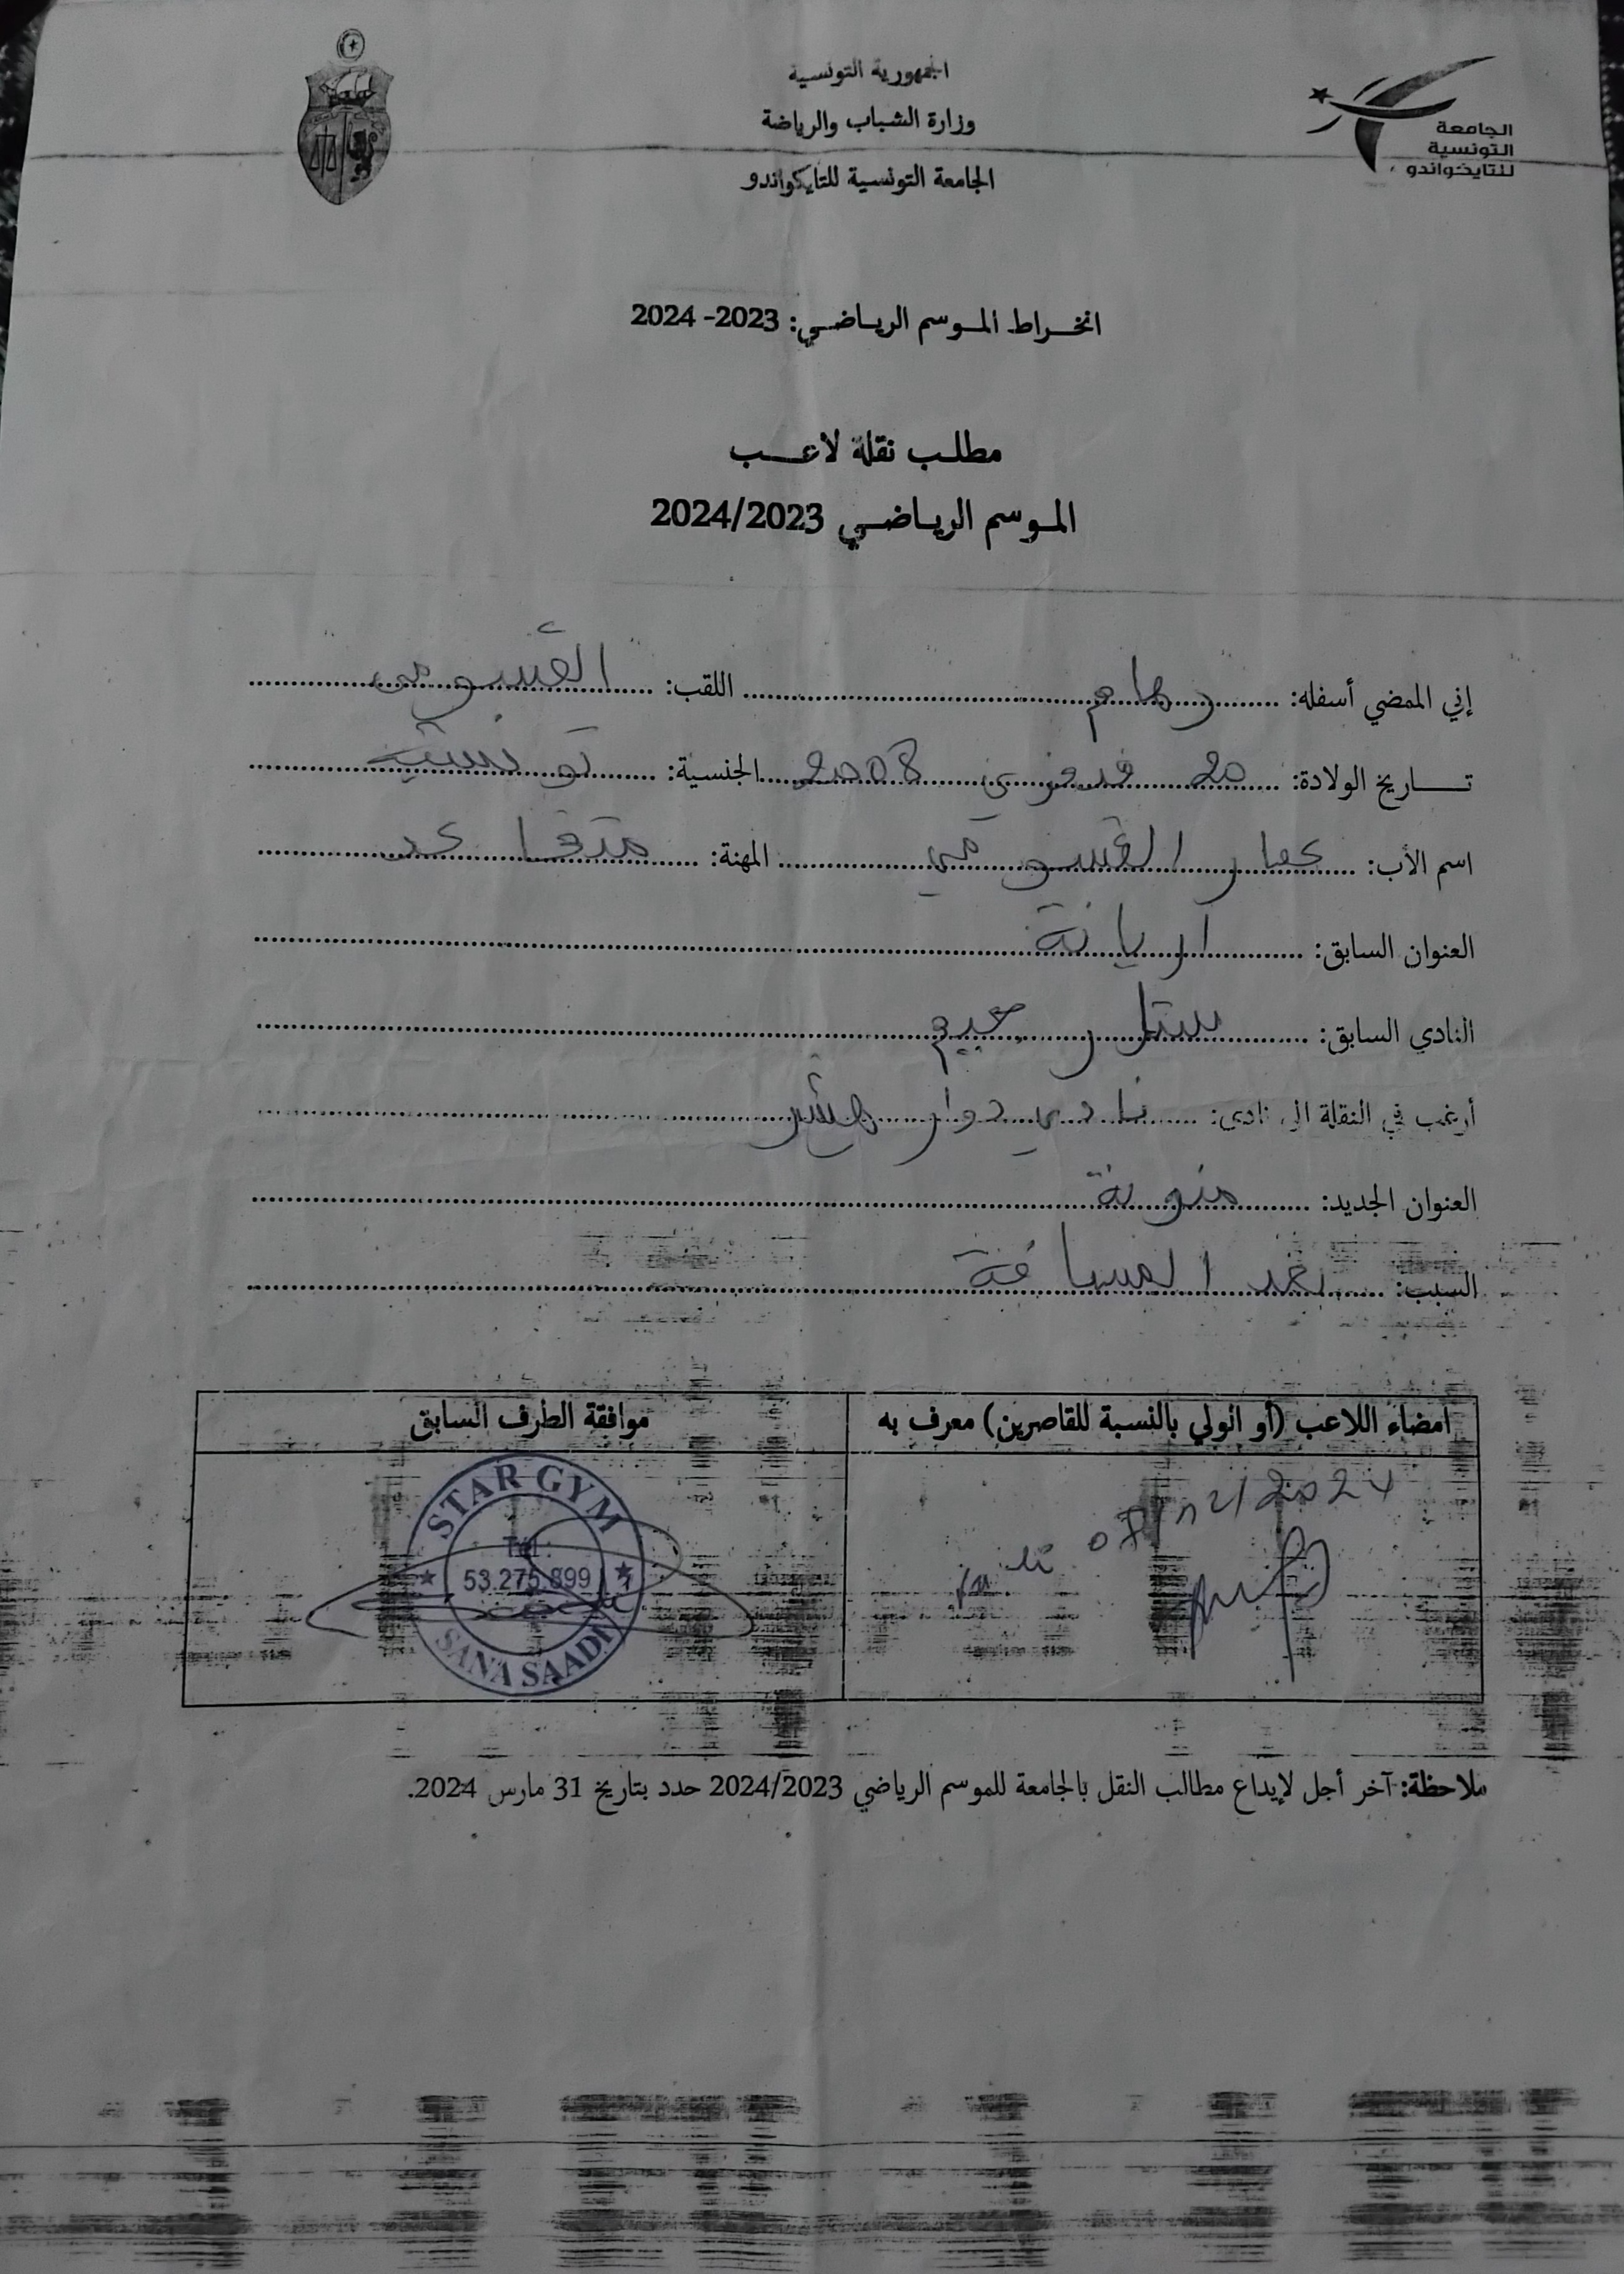 الجمهورية التونسية
وزارة الشباب والرياضة
الجامعة التونسية للتايكواندو
الجامعة
التونسية
للتايكواندو
انخراط الموسم الرياضي: 2023- 2024
مطلب نقلة لاعب
الموسم الرياضي 2024/2023
إني الممضي أسفله: رهام اللقب: القسومي
تاريخ الولادة: 20 فيفري 2008 الجنسية: تونسية
اسم الأب: عمار القسومي المهنة: متقاعد
العنوان السابق: اريانة
النادي السابق: ستار جيم
أرغب في النقلة الى نادي: نادي دوار هيشر
العنوان الجديد: منوبة
السبب: بعد المسافة
امضاء اللاعب (أو الولي بالنسبة للقاصرين) معرف به
موافقة الطرف السابق
2024
STAR GYM
Tél:
53.275.899
SANA SAADI
ملاحظة: آخر أجل لإيداع مطالب النقل بالجامعة للموسم الرياضي 2024/2023 حدد بتاريخ 31 مارس 2024.